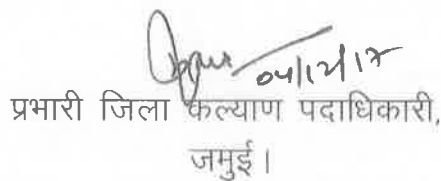 04/12/17
प्रभारी जिला कल्याण पदाधिकारी,
जमुई।